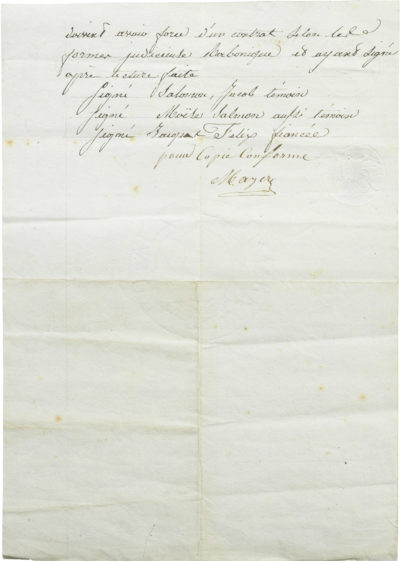 doivent avoir force d'un contrat selon les
formes judicieuse Rabonique et ayant signé
après lecture faite
Signé Salomon, Jacob témoin
Signé Moïse Salmon aussi témoin
Signé Jacques Felix fiancée
pour Copie Conforme
Mayer